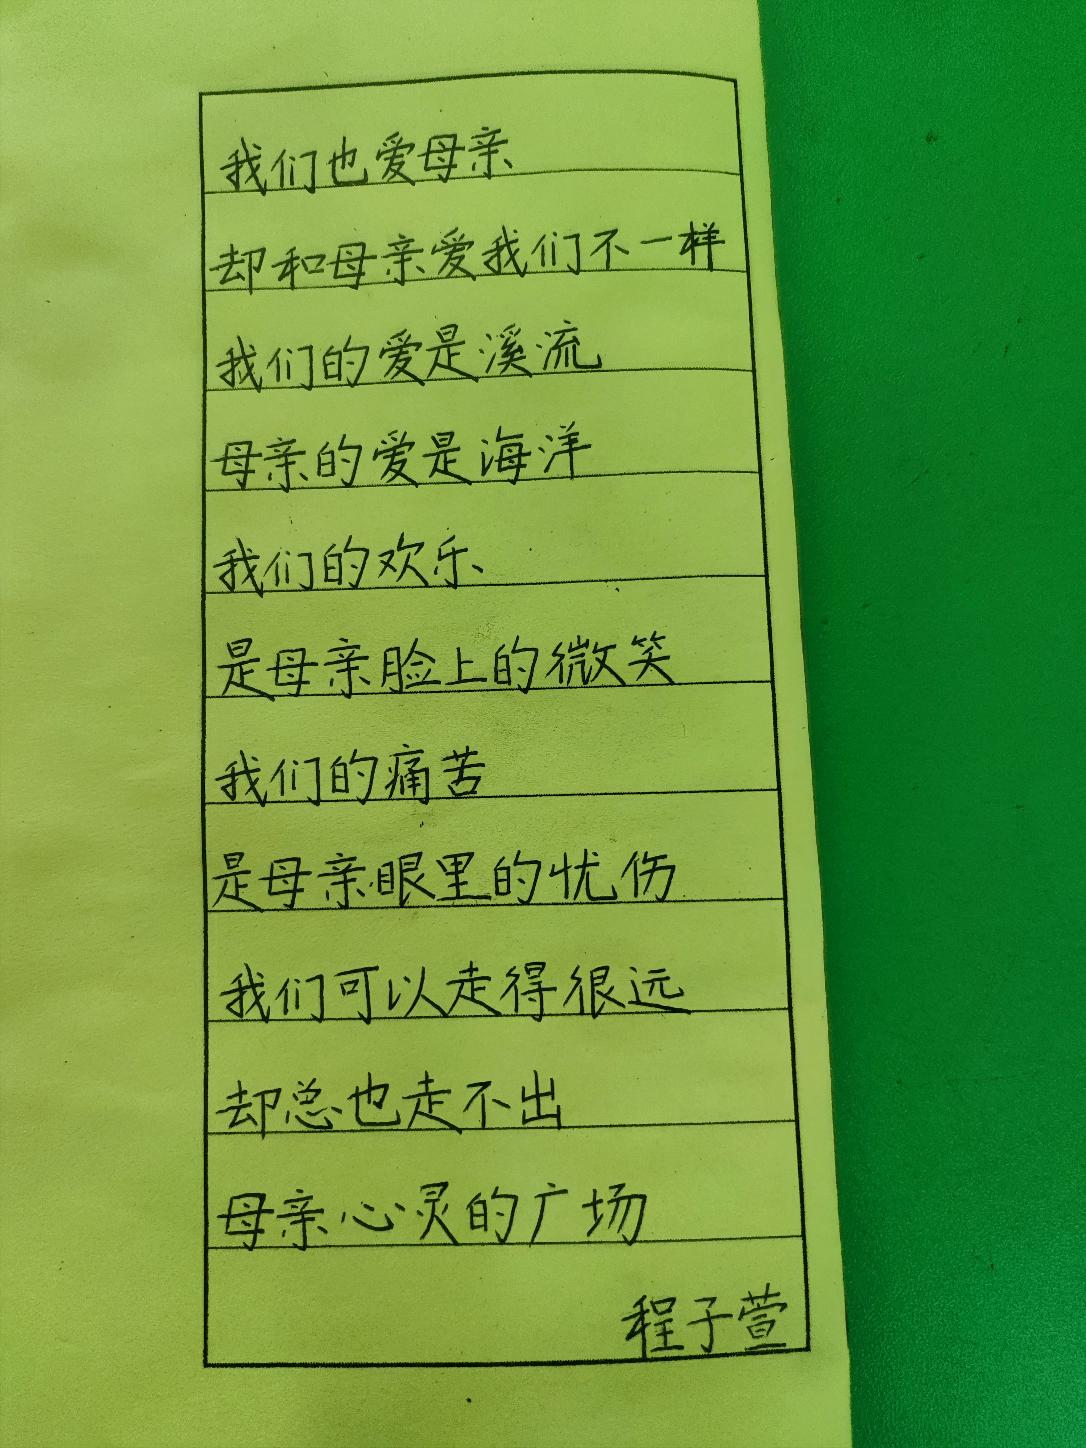 我们也爱母亲
却和母亲爱我们不一样
我们的爱是溪流
母亲的爱是海洋
我们的欢乐
是母亲脸上的微笑
我们的痛苦
是母亲眼里的忧伤
我们可以走得很远
却总也走不出
母亲心灵的广场
程子萱